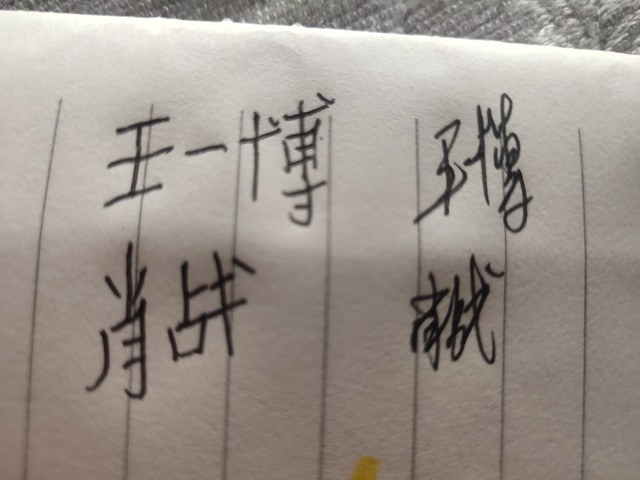 王一博 王一博
肖战 肖战